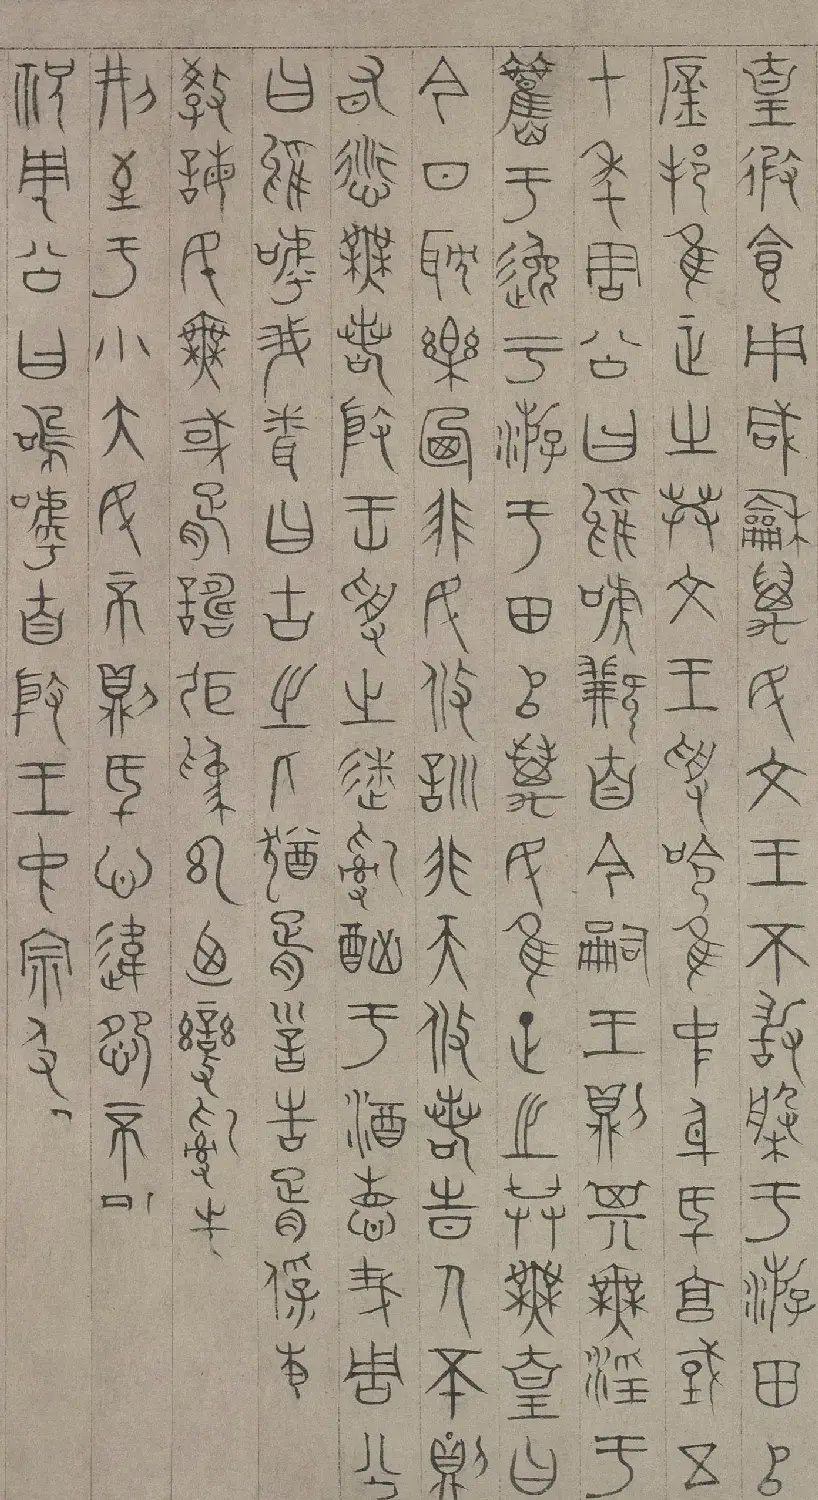 皇假食用咸龢萬民文王不敢槃于游田以
庶邦惟正之共文王受命惟中身厥享國五
十年周公曰於呼繼自今嗣王則其無淫于
觀于逸于游于田以萬民惟正之共無皇曰
今日耽樂乃非民攸訓非天攸若時人丕則
有愆無若殷王受之迷亂酗于酒德哉周公
曰於呼我聞曰古之人猶胥訓告胥保惠
教誨民無或胥譸張為幻乃變亂正
刑至于小大民否則厥心違怨否
祝周公曰嗚呼自殷王中宗及